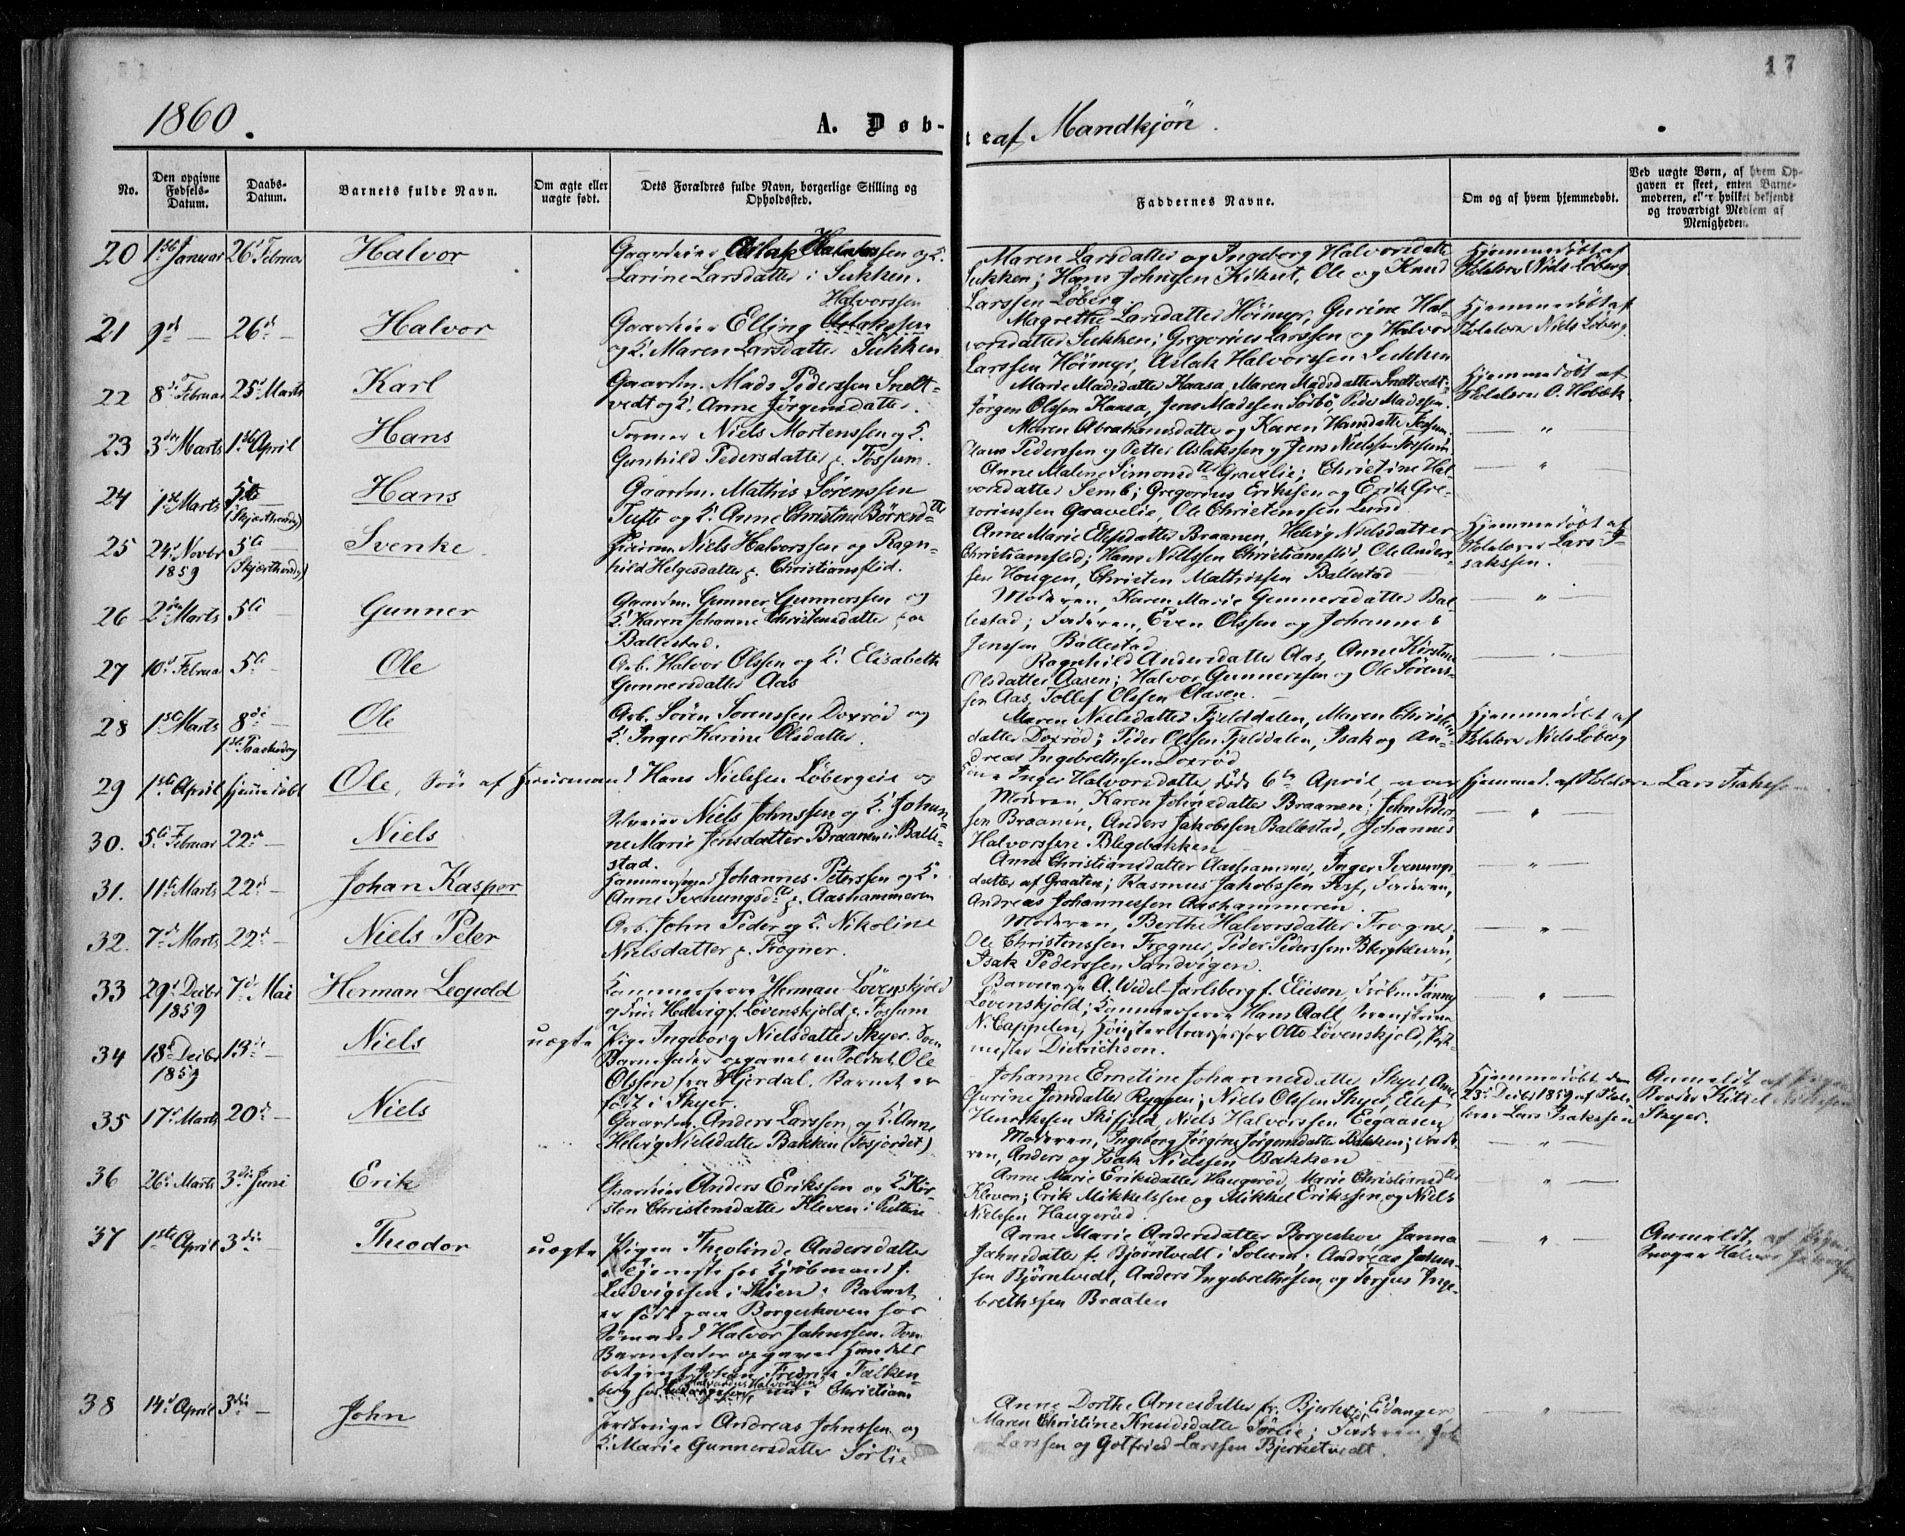 17
1860.
A. Døb-
te af Mandkjøn.
No.
Den opgivne Fødsels-Datum.
Daabs-Datum.
Barnets fulde Navn.
Om ægte eller uægte født.
Dets Forældres fulde Navn, borgerlige Stilling og Opholdssted.
Faddernes Navne.
Om og af hvem hjemmedøbt.
Ved uægte Børn, af hvem Opgaven er skeet, enten Barnemoderen, eller hvilket bekjendt og troværdigt Medlem af Menigheden.
20 1ste Januar 26d Februar Halvor
Gaardeier Aslak Halvorssen og K.
Larine Larsdatter i Sukken.
Maren Larsdatter og Ingeborg Halvorsdatter
Sukken; Hans Johnsen Kikut, Ole og Knud
Larssen Løberg.
Hjemmedøbt af
Skolelærer Niels Løberg.
21 9de — 26d — Halvor
Halvorssen
Gaardeier Elling Aslakssen
og K. Maren Larsdatter Sukken
Magrethe Larsdatter Höimyr, Gurine Hal-
vorsdatter Sukken; Gregorius Larssen og Halvor
Larssen Höimyr, Aslak Halvorssen Sukken
Hjemmedøbt af
Skolelærer Niels Løberg.
22 8d Februar 25d Marts Karl
Gaardm. Mads Pederssen Snelt-
vedt og K. Anne Jørgensdatter.
Marie Madsdatter Kaasa, Maren Madsdatter Sneltvedt;
Jørgen Olssen Kaasa, Jens Madssen Sørbö, Peder Madssen.
Hjemmedøbt af
Skolelærer O. Høbæk.
23 3die Marts 1ste April Hans
Former Niels Mortenssen og K.
Gunhild Pedersdatter p. Fossum.
Maren Abrahamsdatter og Karen Hansdatter Fossum.
Hans Pederssen og Petter Aslakssen og Jens Nielssen Fossum
— " —
24 1ste Marts 5te — (Skjærthorsdag) Hans
Gaardm. Mathis Sørenssen
Tufte og K. Anne Christine Børresd.
Anne Malene Simonsd. Gravelie; Christine Hal-
vorsdatter Semb; Gregorius Erikssen og Erik Gre-
goriussen Gravelie, Ole Christenssen Lund.
— " —
25 24d Novbr 1859 5te (Skjærthorsdag) Svenke
Niels Halvorssen og Ragn-
hild Helgesdatter p. Christiansfled.
Anne Marie Ellefsdatter Braanen, Helvig Nielsdatter
Christiansfled; Hans Nielssen Christiansfled, Ole Anders-
sen Hougen, Christen Mathissen Ballestad
Hjemmedøbt af
Skolelærer Lars I-
sakssen.
26 2den Marts 5te — Gunner
Gaardm. Gunner Gunnerssen og
K. Karen Johanne Christensdatter paa
Ballestad.
Moderen, Karen Marie Gunnersdatter Bal-
lestad; Faderen, Even Olssen og Johannes
Jenssen Ballestad.
— " —
27 10d Februar 5te — Ole
Arb. Halvor Olssen og K. Elisabeth
Gunnersdatter Aas
Ragnhild Andersdatter Aas, Anne Kirstine
Olsdatter Aasen; Halvor Gunnerssen og Ole Sørens-
sen Aas, Tollef Olssen Aasen.
28 1ste Marts 8de — 1ste Paaskedag Ole
Arb. Søren Sørenssen Doxrød og
K. Inger Karine Olsdatter.
Maren Nielsdatter Fjelddalen, Maren Christens-
datter Doxrød; Peder Olssen Fjelddalen, Isak og An-
dreas Ingebrethssen Doxrød
Hjemmedøbt af
Skolelærer Niels Løberg
29 1ste April hjemmedöbt Ole, Søn af Huusmand Hans Nielssen Løbergeie og
Kone Inger Halvorsdatter, døde 6te April, var hjemmed. af Skolelærer Lars Isakssen.
30. 5te Februar 22de Niels
Selveier Niels Johnssen og K. Johan-
ne Marie Jensdatter Braanen i Balle-
stad.
Moderen, Karen Johnsdatter Braanen; John Peder-
sen Braanen, Anders Jakobssen Ballestad, Johannes
Halvorssen Blegebakken
— " —
31. 11te Marts 22d Johan Kasper
Hammersmed Johannes Peterssen og K.
Anne Svenungsd. p. Aashammeren
Anne Christiansdatter Aashammer, Inger Svenungs-
datter af Graaten; Rasmus Jakobssen Fosf, Faderen,
Andreas Johannessen Aashammeren.
— " —
32. 7de Marts 22d — Niels Peter
Arb. John Peder og K. Nikoline
Nielsdatter p. Frogner.
Moderen, Berthe Halvorsdatter Frogner;
Ole Christenssen Frogner, Peder Pederssen Bergkleven,
Isak Pederssen Sandvigen.
— " —
33 29d Decbr 1859 7de Mai Herman Leopold
Kammerherre Herman Løvenskjold
og Frue Hedvig f. Løvenskjold p. Fossum
Baronesse A. Wedel-Jarlsberg f. Eliesen, Frøken Fanny
Løvenskjold; Kammerherre Hans Aall,
N. Cappelen, Høiesteretsassessor Otto Løvenskjold,
Dietrichson.
— " —
34 18d Decbr 1859 13de Niels uægte
Pige Ingeborg Nielsdatter Skyer. Som
Barnefader opgaves en Soldat Ole
Olssen fra Hjerdal. Barnet er
født i Skyer.
Johanne Emeline Johannesdatter Skyer, Anne
Gurine Jonsdatter Ryggen; Niels Olssen Skyer, Ellef
Henrikssen Skilfjeld, Niels Halvorssen Eegaasen
Hjemmedøbt den
23d Decbr 1859 af Skole-
lærer Lars Isakssen
Anmeldt af Pigens
Broder Kittel Nielssen
Skyer.
35 17d Marts 20d — Niels
Gaardm. Anders Larssen og K. Anne
Helvig Nielsdatter Bakken (Fosjordet)
Moderen, Ingeborg Jørgine Jørgensdatter Bakken; Fade-
ren, Anders og Isak Nielssen Bakken
— " —
36 26d Marts 3die Juni Erik
Gaardeier Anders Erikssen og K. Kir-
sten Christensdatter Kleven i
Anne Marie Eriksdatter Haugerød, Marie Christiansdatter
Kleven; Erik Mikkelssen og Mikkel Erikssen, og Niels
Nielssen Haugerød.
— " —
37 1ste April 3die — Theodor uægte
Pigen Theolinde Andersdatter
i Tjeneste hos Kjøbmand J.
Ludvigssen i Skien. Barnet
er født paa Borgeskoven hos
Sømand Halvor Jahnssen. Som
Barnefader opgaves Handels-
betjent Johan Fredrik Falken-
berg hos Halvorssen nu i Christian
Anne Marie Andersdatter Borgeskov, Janna
Jahnsdatter fr. Bjørntvedt i Solum; Andreas Jahns-
sen Bjørntvedt, Anders Ingebrethssen og Torjus Inge-
brethssen Braaten
— " —
Anmeldt af Pigens
Svoger Halvor Jahnssen
38 14d April 3die — John
Jordbruger Andreas Johnssen og
K. Marie Gunnersdatter Sørlie
Anne Dorthe Arnesdatter fr. Bjerketvedt i Eidanger,
Maren Christine Knudsdatter Sørlie; Faderen,
Larssen og Gotfried Larssen Bjerketvedt.
— " —